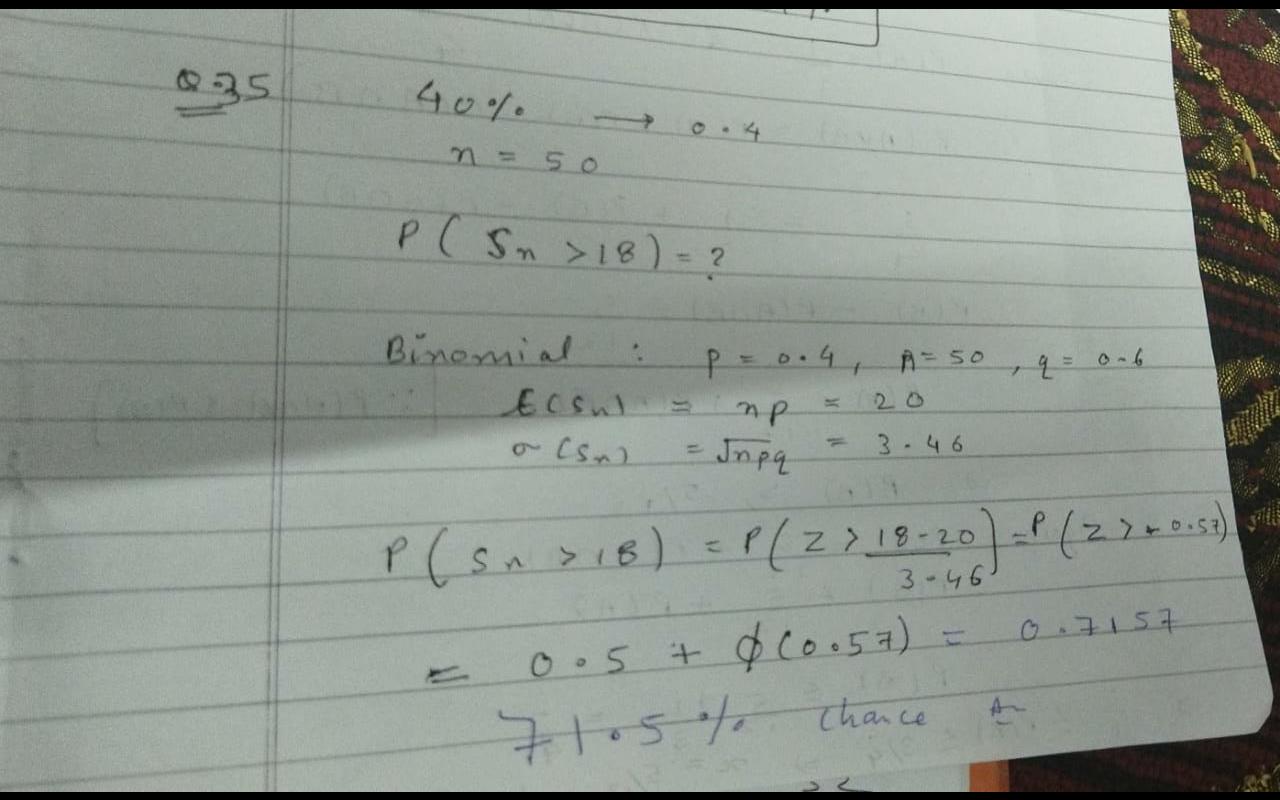 Q.35
40% → 0.4
n = 50
P ( Sn > 18 ) = ?
Binomial : p = 0.4, n = 50, q = 0.6
E(Sn) = np = 20
σ(Sn) = √npq = 3.46
P ( Sn > 18 ) = P ( Z > 18-20 / 3.46 ) = P ( Z > - 0.57 )
= 0.5 + ϕ(0.57) = 0.7157
71.5% chance